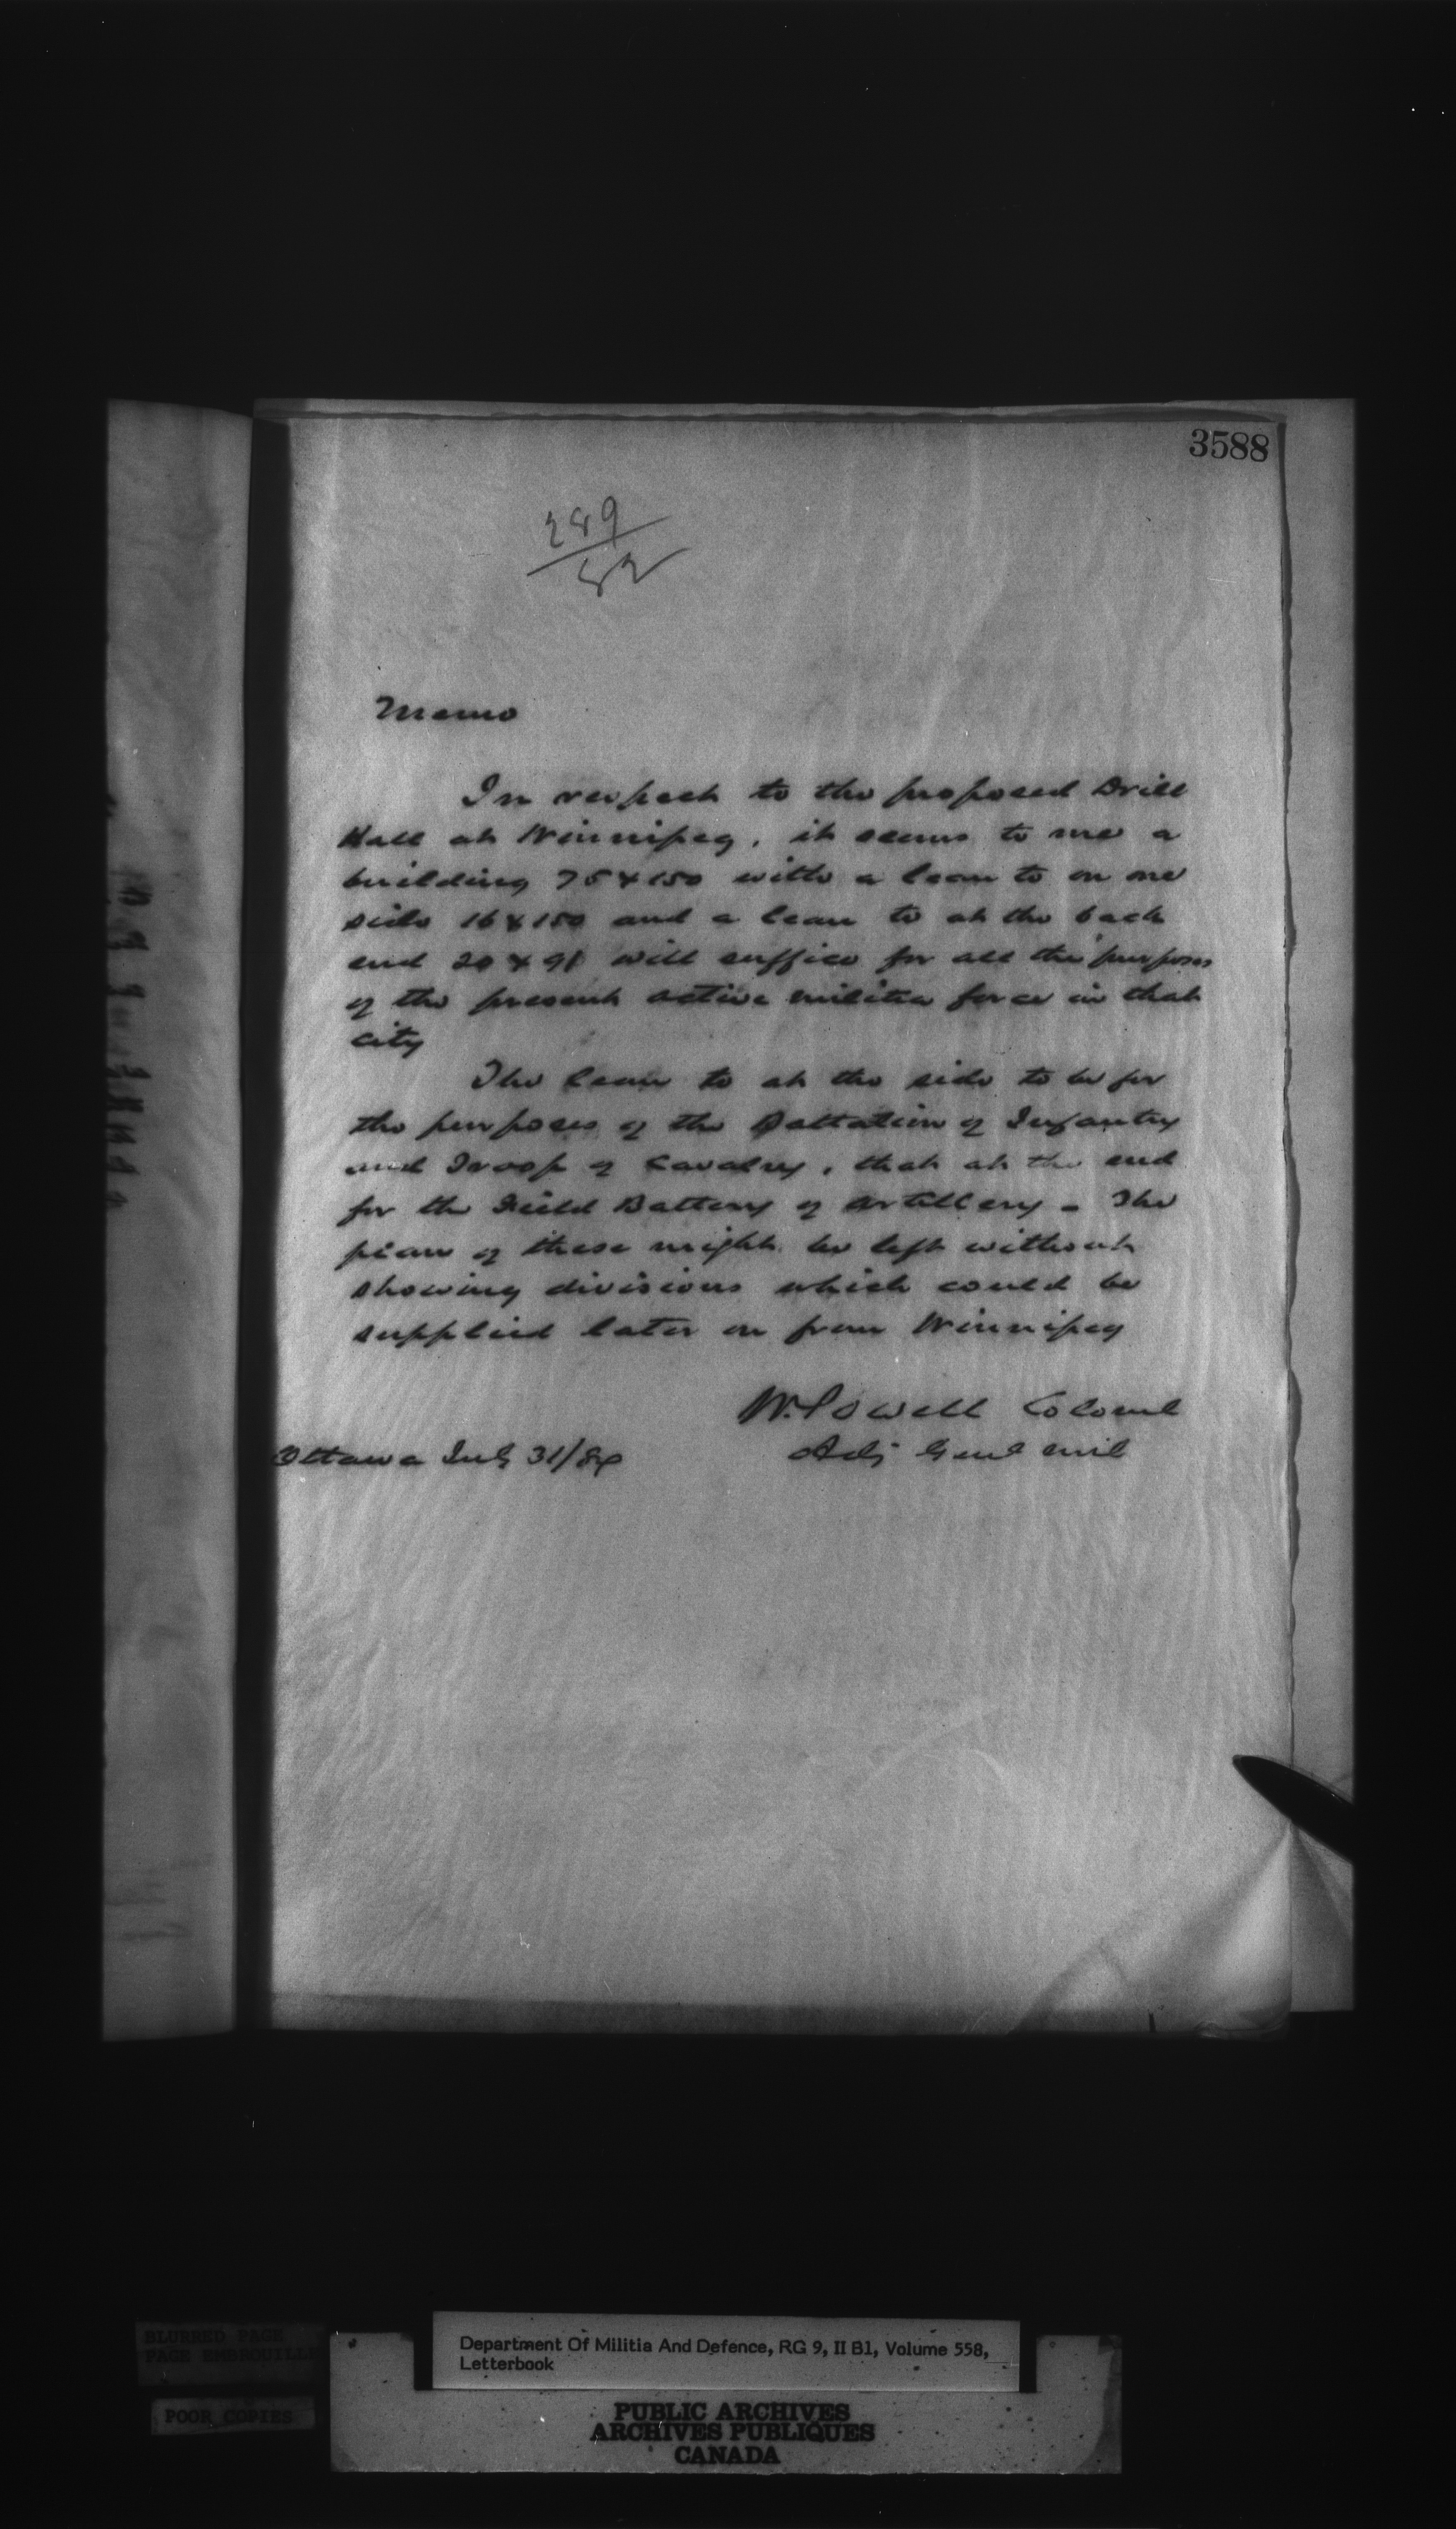 3588
289
82
Memo
In respect to the proposed Drill
Hall at Winnipeg, it seems to me a
building 75 x 150 with a lean to on one
side 16 x 150 and a lean to at the back
end 20 x 91 will suffice for all the purposes
of the present active militia force in that
city
The lean to at the side to be for
the purposes of the Battalion of Infantry
and Troop of Cavalry, that at the end
for the Field Battery of Artillery - The
plan of these might be left without
showing divisions which could be
supplied later on from Winnipeg
W. Powell Colonel
Adj Genl Mil
Ottawa July 31/84
BLURRED PAGE
PAGE EMBROUILLÉE
POOR COPIES
Department Of Militia And Defence, RG 9, II B1, Volume 558,
Letterbook
PUBLIC ARCHIVES
ARCHIVES PUBLIQUES
CANADA